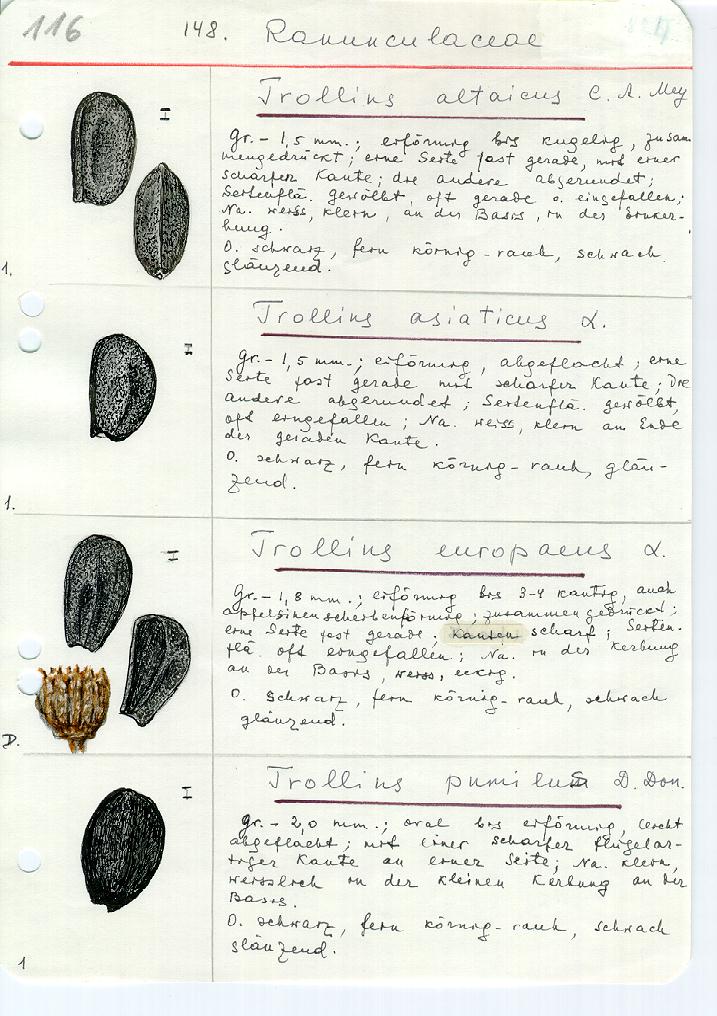 116 148. Ranunculaceae
Trollius altaicus C. A. Mey
Gr. - 1,5 mm.; eiförmig bis kugelig, zusam
mengedrückt; eine Seite fast gerade, mit einer
scharfen Kante; die andere abgerundet;
Seitenflä. gewölbt, oft gerade o. eingefallen;
Na. weiss, klein, an der Basis, in der Einker-
bung.
O. schwarz, fein körnig-rauh, schwach
glänzend.
1.
Trollius asiaticus L.
Gr. - 1,5 mm.; eiförmig, abgeflacht; eine
Seite fast gerade mit scharfer Kante; Die
andere abgerundet; Seitenflä. gewölbt,
oft eingefallen; Na. weiss, klein am Ende
der geraden Kante.
O. schwarz, fein körnig-rauh, glän-
zend.
1.
Trollius europaeus L.
Gr. - 1,8 mm.; eiförmig bis 3-4 kantig, auch
apfelsinenscheibenförmig; zusammengedrückt;
eine Seite fast gerade; Kanten scharf; Seiten-
flä. oft eingefallen; Na. in der Kerbung
an der Basis, weiss, eckig.
O. schwarz, fein körnig-rauh, schwach
glänzend.
D.
Trollius pumilus D. Don.
Gr. - 2,0 mm.; oval bis eiförmig, leicht
abgeflacht; mit einer scharfer flügelar-
tiger Kante an einer Seite; Na. klein,
weisslich in der kleinen Kerbung an der
Basis.
O. schwarz, fein körnig-rauh, schwach
glänzend.
1